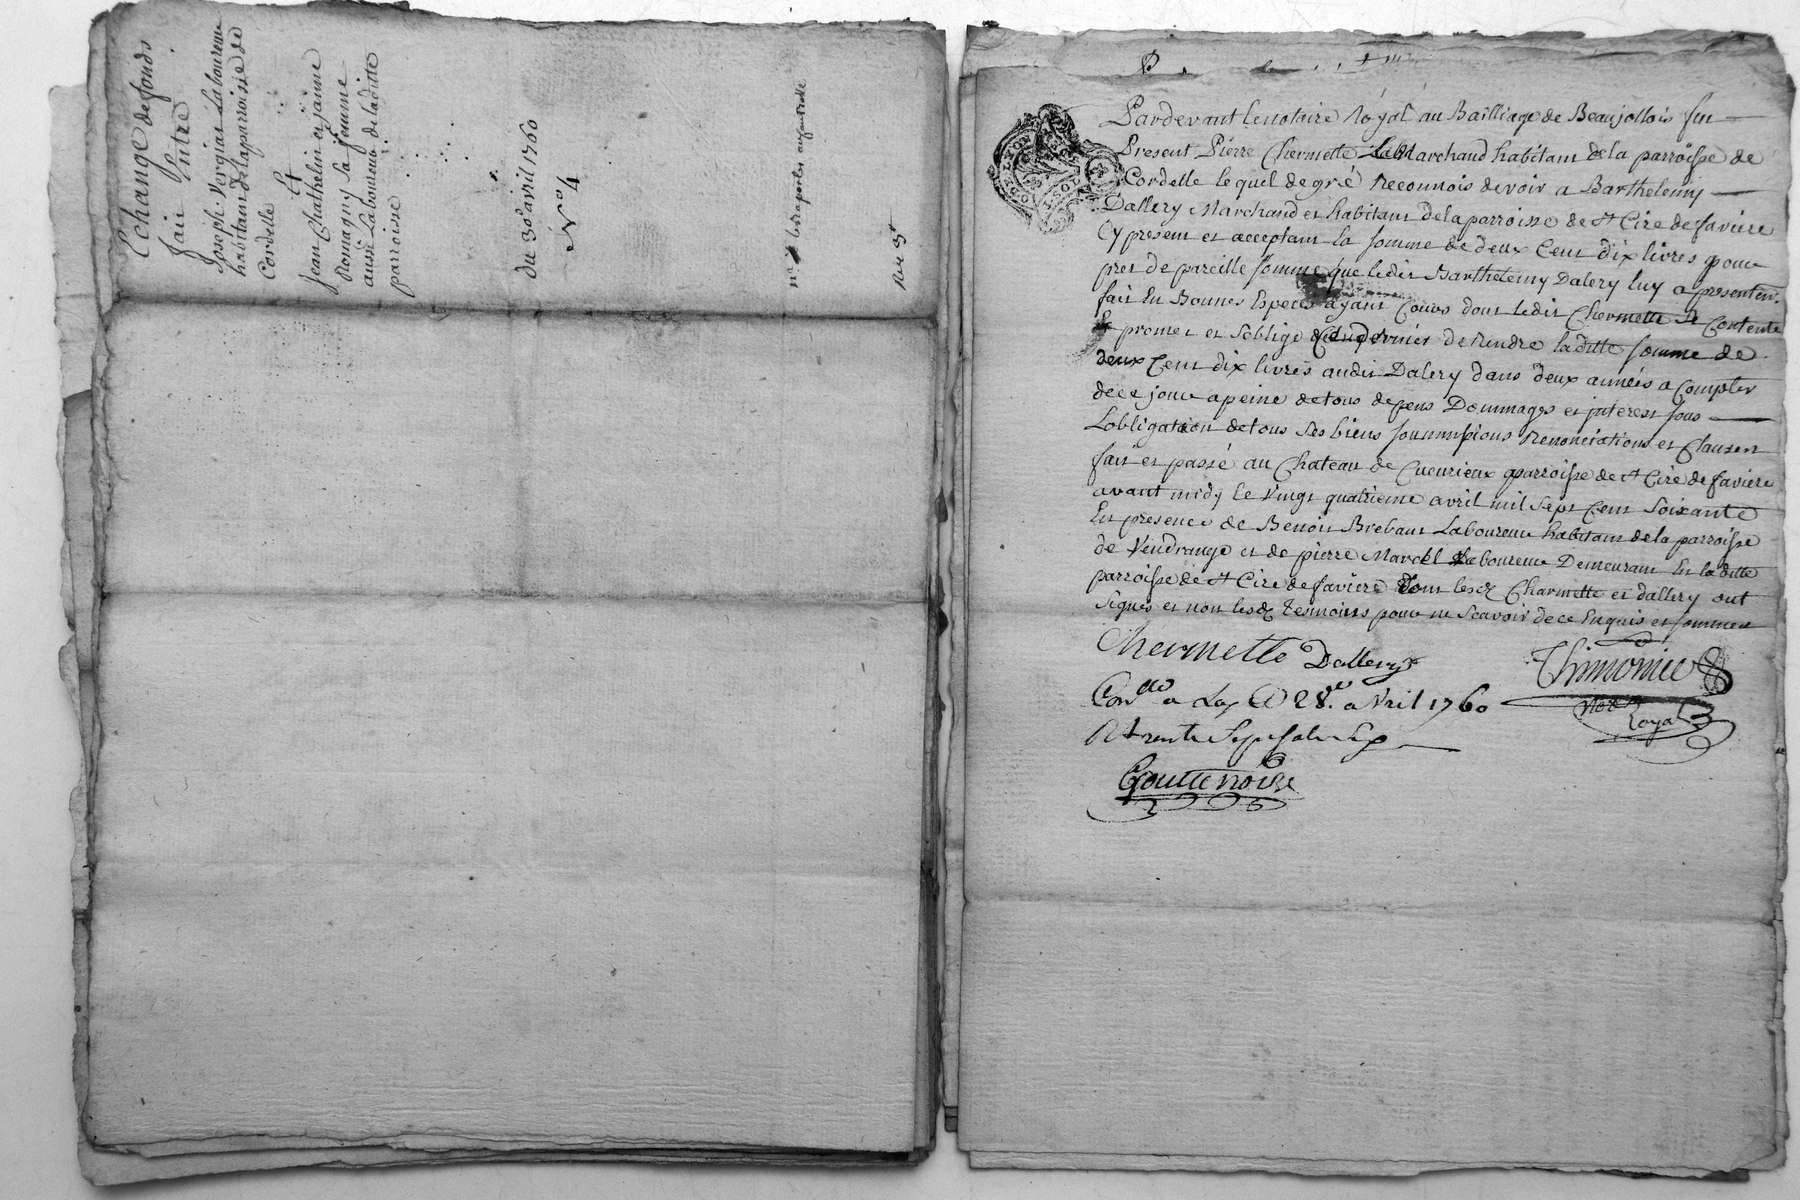 Echange de fonds
fait Entre
Joseph Vergiat Laboureur
habitant de la parroisse de
Cordelle
Et
Jean Chathelin et janne
Romagny sa femme
aussi Laboureurs de la dite
parroisse
du 30e avril 1760
N° 4
Pardevant le notaire Royal au Bailliage de Beaujollois fut
Present Pierre Chermette Marchand habitant de la parroisse de
Cordelle lequel de gré reconnois devoir a Barthelemy
Dallery Marchand et habitant de la parroisse de St Cire de faviere
Cy present et acceptant la somme de deux Cent dix livres pour
pret de pareille somme que ledit Barthelemy Dalery luy a presentem.
fait En Bonnes Especes ayant Cours dont ledit Chermette se Contente
Et promet et soblige de rendre la ditte somme de
deux Cent dix livres audit Dalery dans deux années a Compter
de ce jour a peine de tous depens Dommages et interest sous
Lobligation de tous ses biens soumissions Renonciations et Clauses
fait et passé au Chateau de Cucurieux parroisse de St Cire de faviere
avant midy le vingt quatrieme avril mil sept Cent soixante
En presence de Benoit Brebant Laboureur habitant de la parroisse
de Vendrange et de pierre Marcel Laboureur Demeurant En la ditte
parroisse de St Cire de faviere dont lesd. Charmette et dallery ont
signés et non lesd. Temoins pour ne scavoir de ce Enquis et sommes
Chermette Dallery
Thimonier
Nore
Royal
Conllé a Lay Ce 28.e avril 1760
Goutte noire